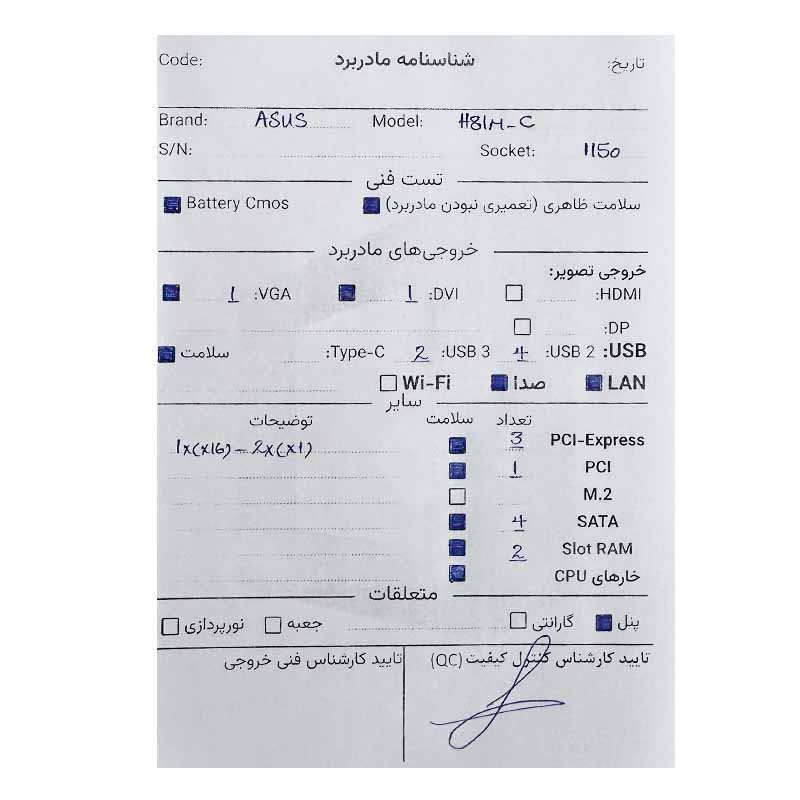 شناسنامه مادربرد
تاریخ:
Code:
Brand: ASUS Model: H81M-C
S/N: Socket: 1150
تست فنی
سلامت ظاهری (تعمیری نبودن مادربرد) Battery Cmos
خروجی‌های مادربرد
خروجی تصویر:
HDMI: DVI: 1 VGA: 1
DP:
USB: USB 2: 4 USB 3: 2 Type-C: سلامت
LAN صدا Wi-Fi
سایر
تعداد سلامت توضیحات
PCI-Express 3 1x(x16) - 2x(x1)
PCI 1
M.2
SATA 4
Slot RAM 2
خارهای CPU
متعلقات
پنل گارانتی جعبه نورپردازی
تایید کارشناس کنترل کیفیت (QC) تایید کارشناس فنی خروجی